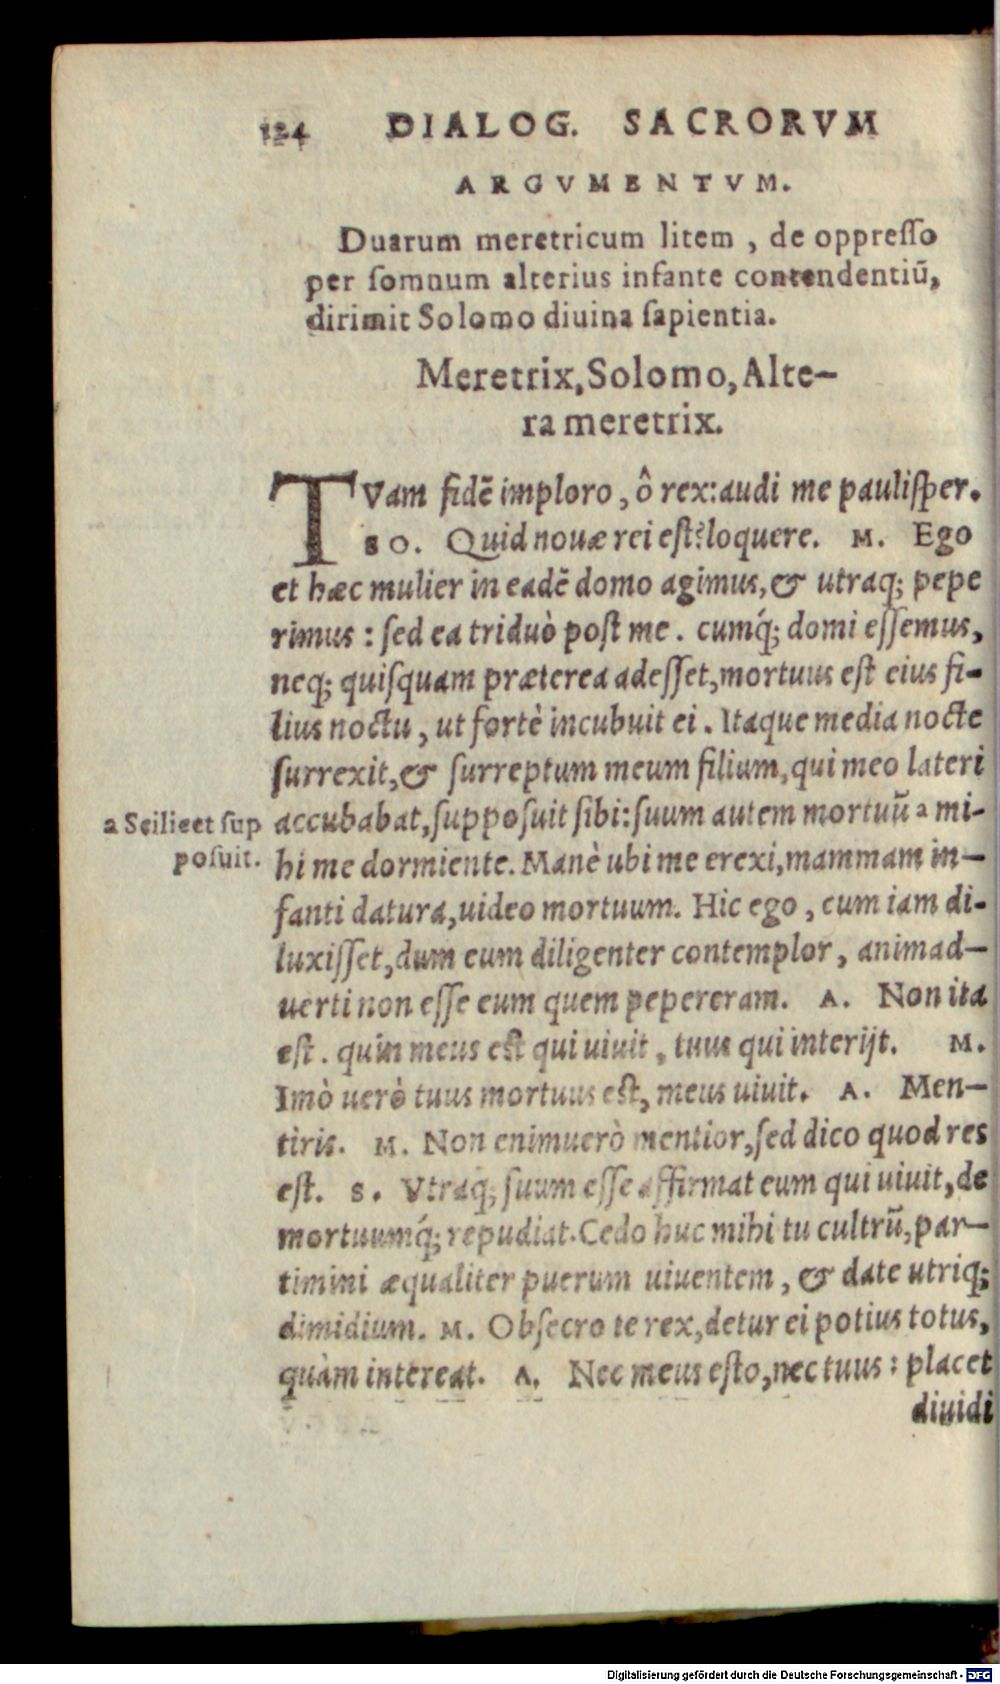 124 DIALOG. SACRORVM
ARGVMENTVM.
Duarum meretricum litem, de oppresso
per somnum alterius infante contendentiũ,
dirimit Solomo diuina sapientia.
Meretrix, Solomo, Alte-
ra meretrix.
TVam fidẽ imploro, ô rex: audi me paulisper.
SO. Quid nouæ rei est? loquere. M. Ego
et hæc mulier in eadẽ domo agimus, & utraq; pepe
rimus: sed ea triduò post me. cumq́; domi essemus,
neq; quisquam præterea adesset, mortuus est eius fi-
lius noctu, ut fortè incubuit ei. Itaque media nocte
surrexit, & surreptum meum filium, qui meo lateri
accubabat, supposuit sibi: suum autem mortuũ a mi-
a Scilicet sup
posuit.
hi me dormiente. Manè ubi me erexi, mammam in-
fanti datura, uideo mortuum. Hic ego, cum iam di-
luxisset, dum eum diligenter contemplor, animad-
uerti non esse eum quem pepereram. A. Non ita
est. quin meus est qui uiuit, tuus qui interijt. M.
Imò uerò tuus mortuus est, meus uiuit. A. Men-
tiris. M. Non enimuerò mentior, sed dico quod res
est. S. Vtraq; suum esse affirmat eum qui uiuit, de
mortuumq́; repudiat. Cedo huc mihi tu cultrũ, par-
timini æqualiter puerum uiuentem, & date utriq;
dimidium. M. Obsecro te rex, detur ei potius totus,
quàm intereat. A. Nec meus esto, nec tuus: placet
diuidi
Digitalisierung gefördert durch die Deutsche Forschungsgemeinschaft - DFG